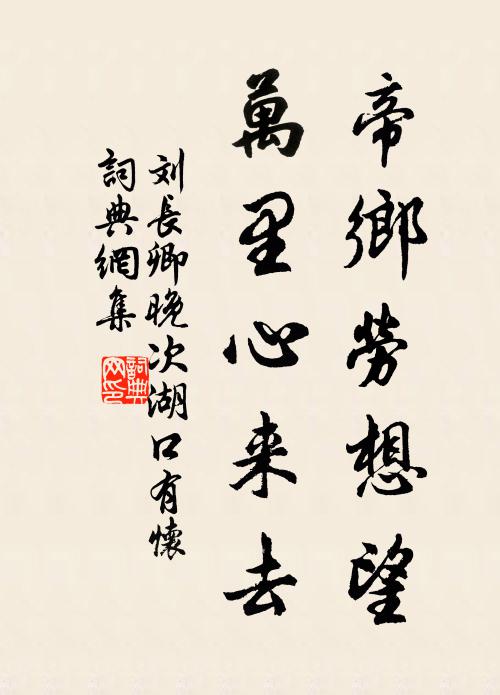 帝鄉勞想望
萬里心来去
刘長卿晚次湖口有懷
詞典網集
詞典
网印